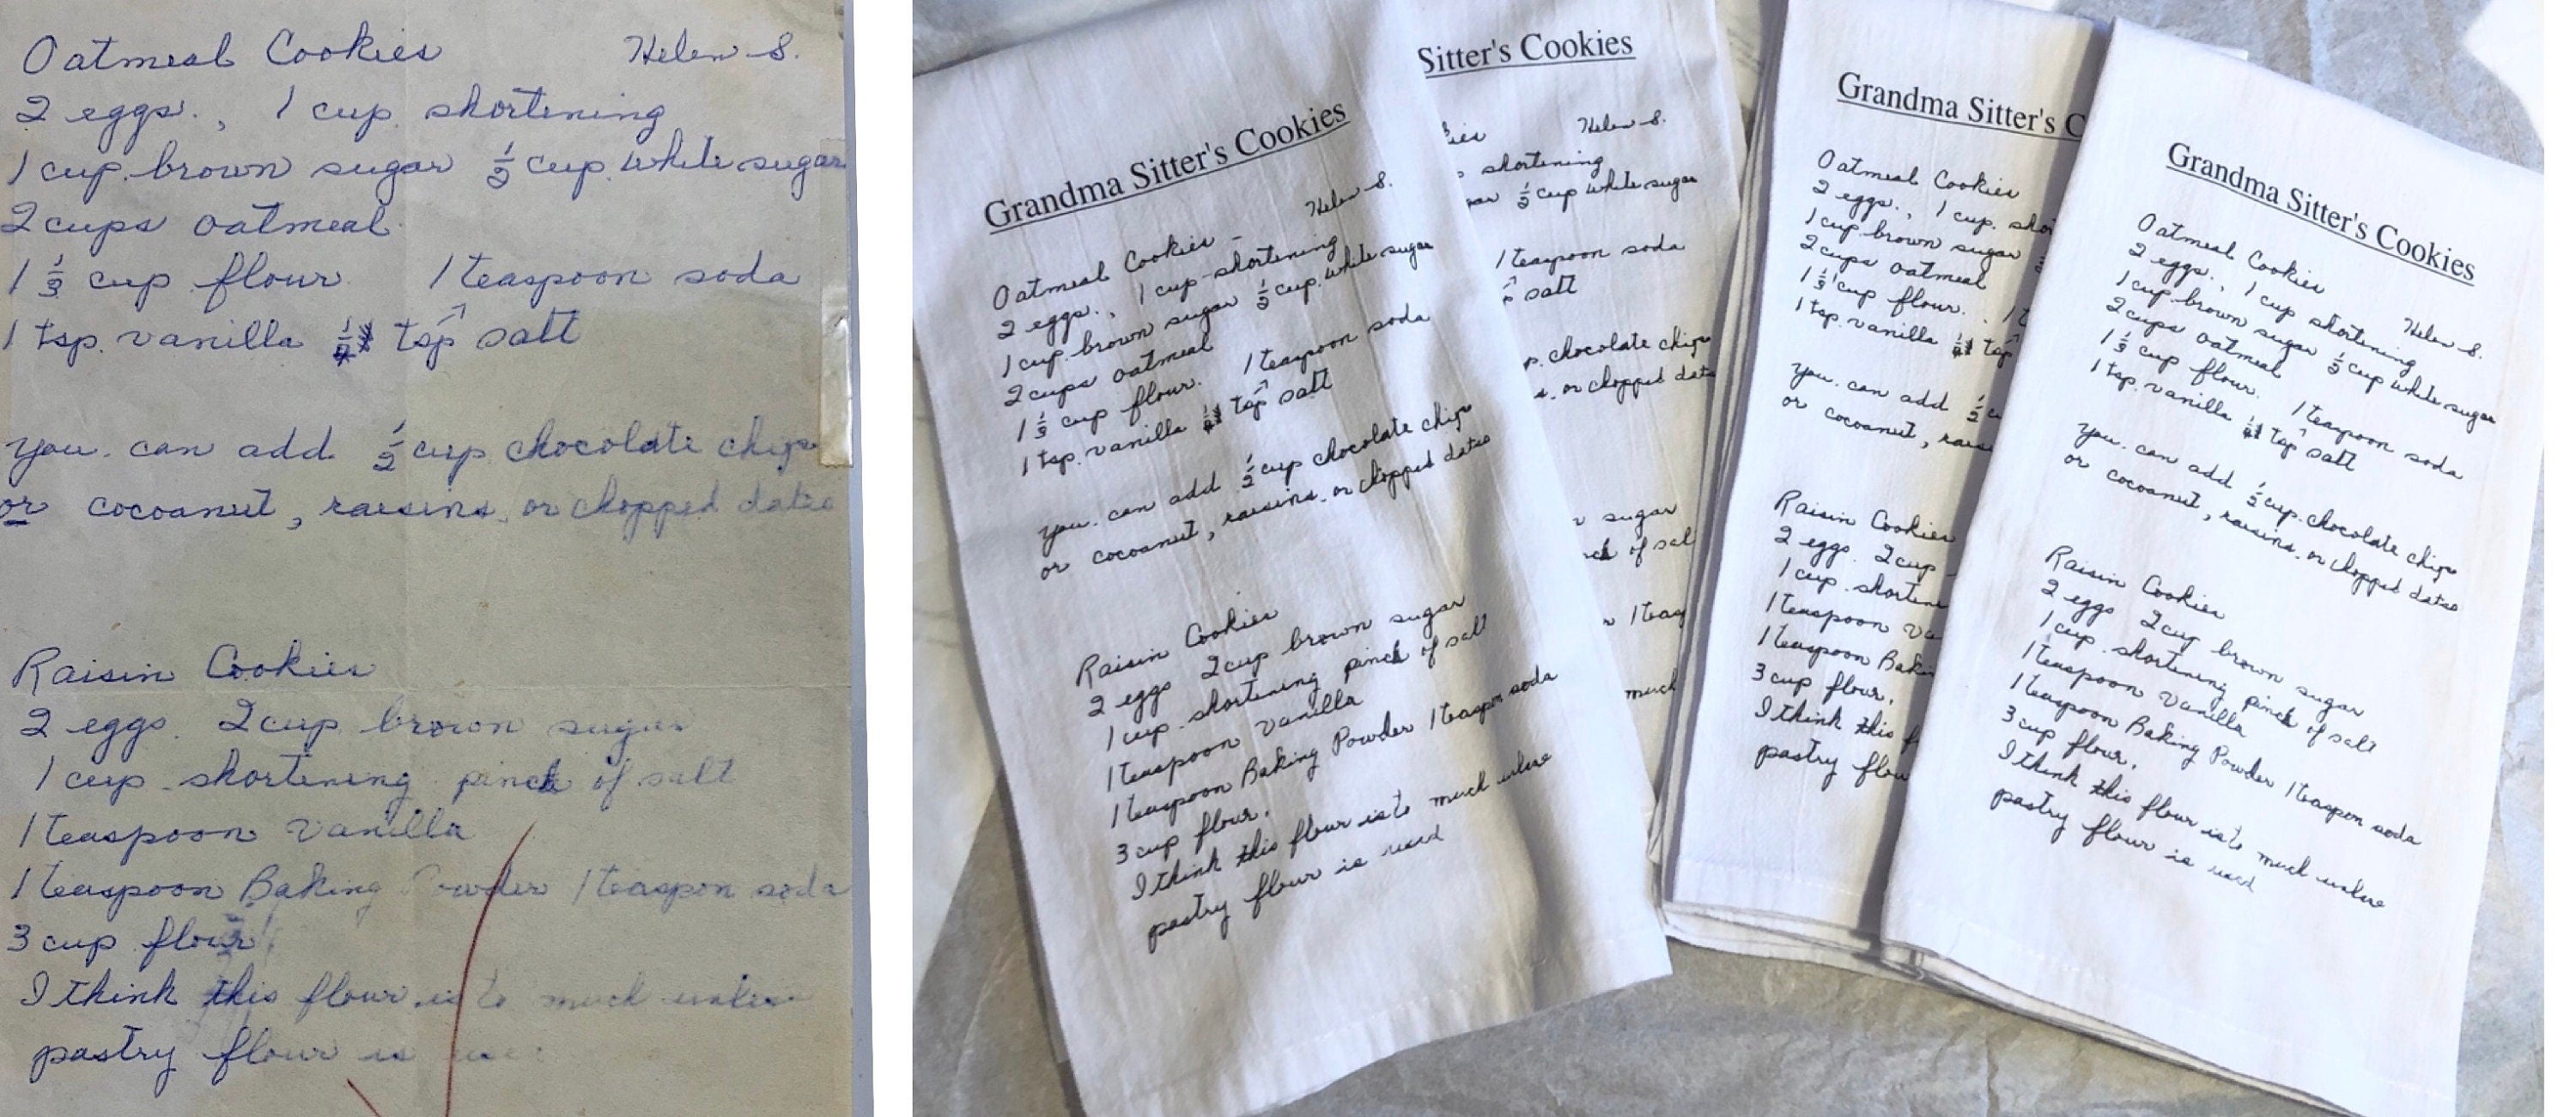 Oatmeal Cookies Helen S.
2 eggs., 1 cup shortening
1 cup brown sugar ½ cup white sugar
2 cups oatmeal
1 ⅓ cup flour 1 teaspoon soda
1 tsp. vanilla tsp salt
you can add ½ cup chocolate chips
or cocoanut, raisins, or chopped dates
Raisin Cookies
2 eggs 2 cup brown sugar
1 cup shortening pinch of salt
1 teaspoon vanilla
1 teaspoon Baking Powder 1 teaspon soda
3 cup flour
I think this flour is to much unless
pastry flour is
Grandma Sitter's Cookies
Oatmeal Cookies Helen S.
2 eggs., 1 cup shortening
1 cup brown sugar ½ cup white sugar
2 cups oatmeal
1 ⅓ cup flour. 1 teaspoon soda
1 tsp. vanilla tsp salt
you can add ½ cup chocolate chips
or cocoanut, raisins, or chopped dates
Raisin Cookies
2 eggs 2 cup brown sugar
1 cup shortening pinch of salt
1 teaspoon vanilla
1 teaspoon Baking Powder 1 teaspon soda
3 cup flour.
I think this flour is to much unless
pastry flour is used
Sitter's Cookies
Helen S.
shortening
½ cup white sugar
1 teaspoon soda
salt
chocolate chips
or chopped dates
sugar
of salt
much
Grandma Sitter's C
Oatmeal Cookies
2 eggs., 1 cup shor
1 cup brown sugar
2 cups oatmeal
1 ⅓ cup flour. 1 t
1 tsp. vanilla tsp
you can add ½ c
or cocoanut, rais
Raisin Cookies
2 eggs 2 cup
1 cup shortene
1 teaspoon va
1 teaspoon Baki
3 cup flour.
I think this f
pastry flou
Grandma Sitter's Cookies
Oatmeal Cookies Helen S.
2 eggs., 1 cup shortening
1 cup brown sugar ½ cup white sugar
2 cups oatmeal
1 ⅓ cup flour. 1 teaspoon soda
1 tsp. vanilla tsp salt
you can add ½ cup chocolate chips
or cocoanut, raisins, or chopped dates
Raisin Cookies
2 eggs 2 cup brown sugar
1 cup shortening pinch of salt
1 teaspoon vanilla
1 teaspoon Baking Powder 1 teaspon soda
3 cup flour.
I think this flour is to much unless
pastry flour is used